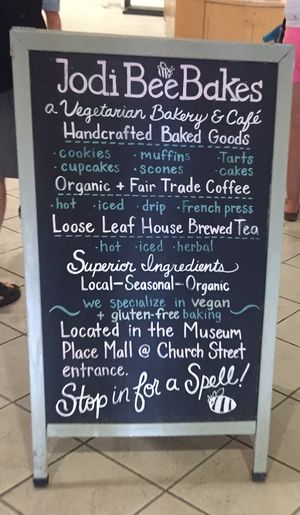 Jodi Bee Bakes
a Vegetarian Bakery & Café
Handcrafted Baked Goods
· cookies · muffins · Tarts
· cupcakes · scones · cakes
Organic + Fair Trade Coffee
· hot · iced · drip · French press
Loose Leaf House Brewed Tea
· hot · iced · herbal
Superior Ingredients
Local-Seasonal-Organic
we specialize in vegan
+ gluten-free baking
Located in the Museum
Place Mall @ Church Street
entrance.
Stop in for a Spell!